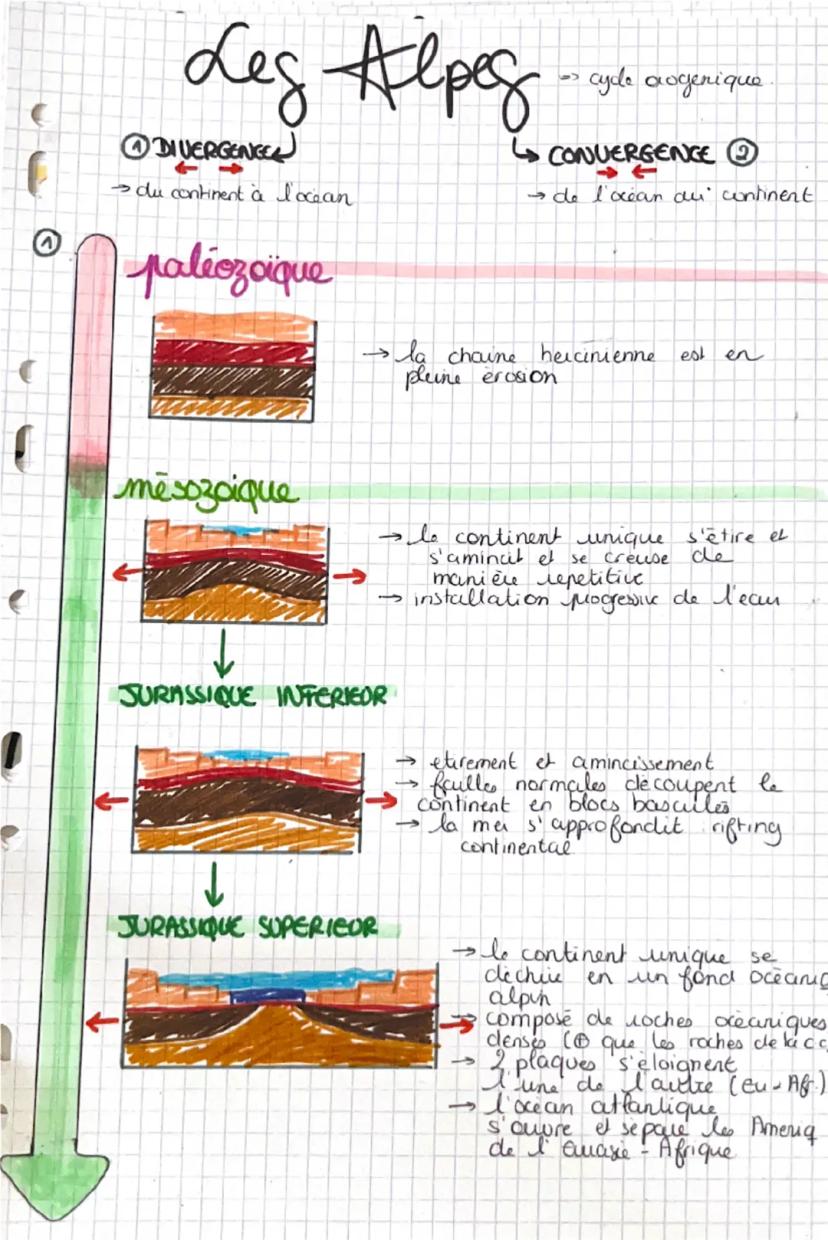 Les Alpes → cycle orogenique.
① DIVERGENCE
CONVERGENCE ②
→ du continent à l'océan
→ de l'océan au continent
①
paléozoïque
→ la chaine hercinienne est en
pleine erosion
mésozoique
→ le continent unique s'étire et
s'amincit et se creuse de
manière repetitive
→ installation progressive de l'eau
JURASSIQUE INFERIEOR
→ etirement et amincissement
→ failles normales découpent le
continent en blocs basculés
→ la mer s'approfondit rifting
continental
JURASSIQUE SUPERIEOR
→ le continent unique se
déchire en un fond océaniq
alpin
→ composé de roches océaniques
denses (⊕ que les roches de la cc
→ 2 plaques s'éloignent
l'une de l'autre (Eu-Afr.)
→ l'océan atlantique
s'ouvre et sépare les Ameriq
de l'Eurasie - Afrique